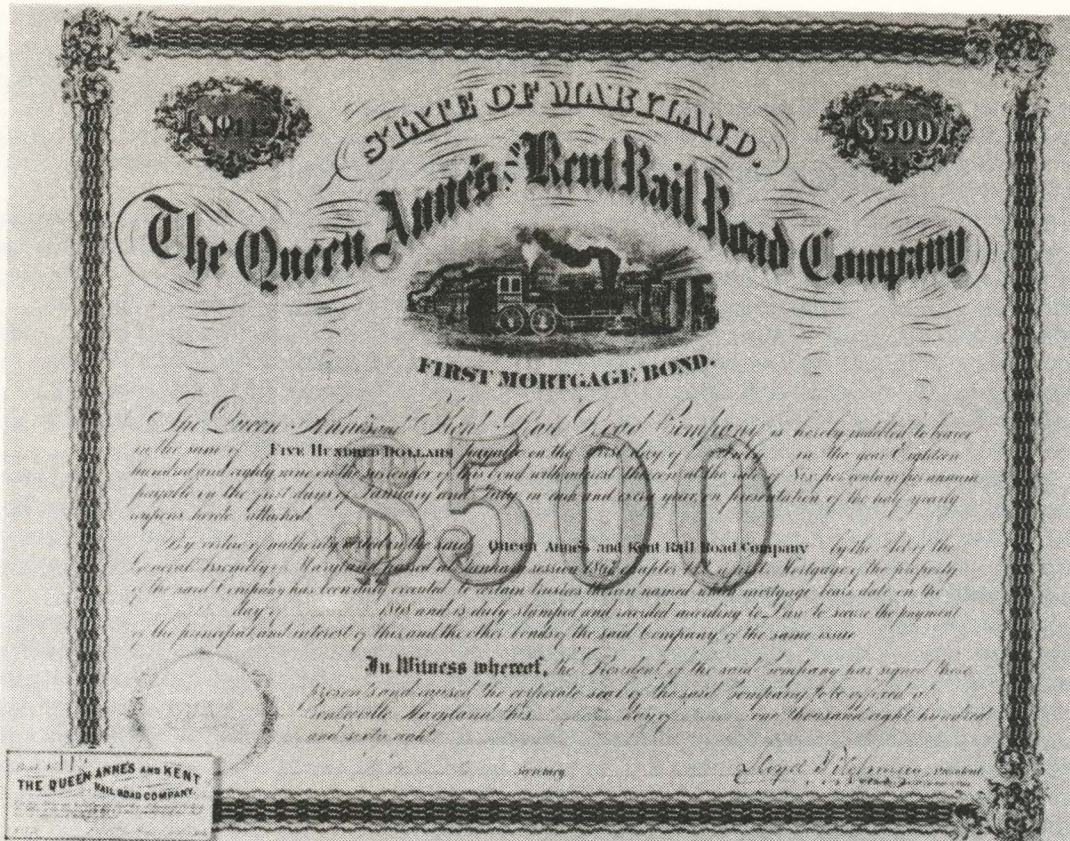 No 11
$500
STATE OF MARYLAND.
The Queen Anne's and Kent Rail Road Company
FIRST MORTGAGE BOND.
The Queen Anne's and Kent Rail Road Company is hereby indebted to bearer
in the sum of FIVE HUNDRED DOLLARS payable on the first day of in the year Eighteen
hundred and eighty nine on the surrender of this bond with interest thereon at the rate of Six per centum per annum
payable on the first days of January and July in each and every year, on presentation of the half yearly
coupons hereto attached.
$500
By virtue of authority vested in the said Queen Anne's and Kent Rail Road Company by the Act of the
General Assembly of Maryland passed at session chapter a first Mortgage of the property
of the said Company has been duly executed to certain trustees therein named which mortgage bears date on the
day of 1868 and is duly stamped and recorded according to Law to secure the payment
of the principal and interest of this and the other bonds of the said Company of the same issue
In Witness whereof, the President of the said Company has signed these
presents and caused the corporate seal of the said Company to be affixed at
Centreville Maryland this day of one thousand eight hundred
and sixty eight
Secretary
Lloyd Tilghman, President
THE QUEEN ANNE'S AND KENT
RAIL ROAD COMPANY.